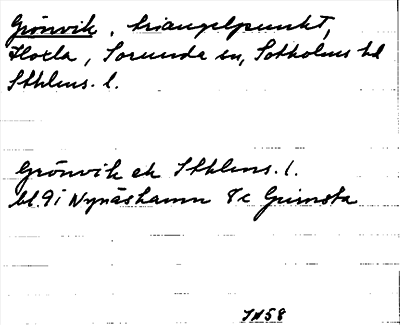 Grönvik, triangelpunkt,
Hoxla, Sorunda sn, Sotholms hd
Sthlms. l.
Grönvik ek Sthlms. l.
bl. 9i Nynäshamn 8c Grimsta
IN58